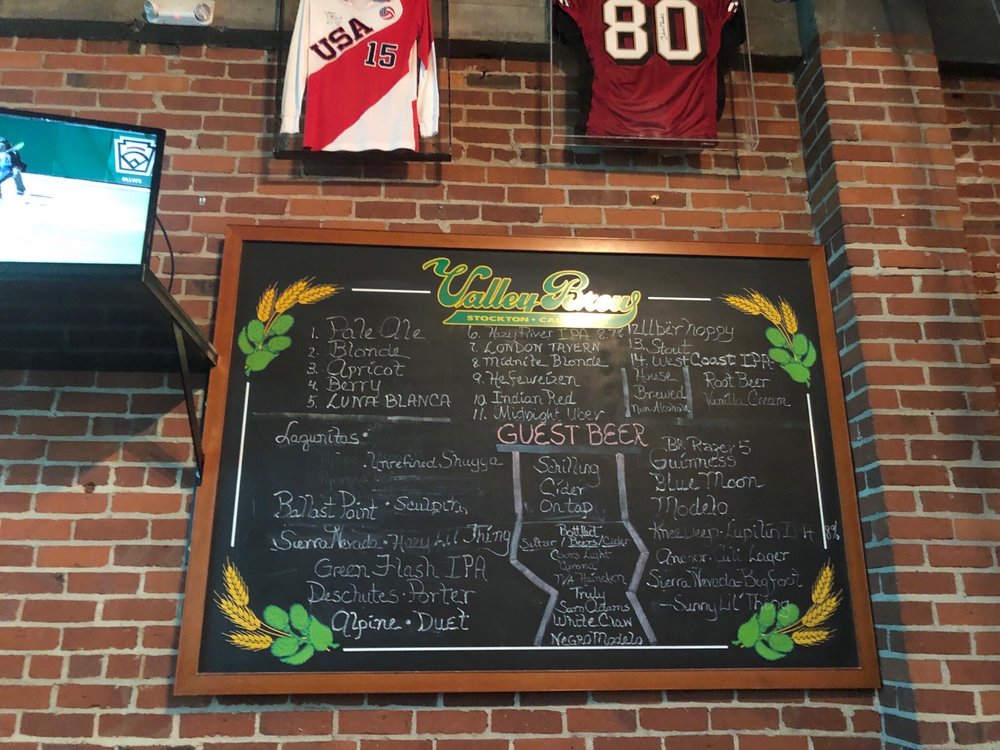 USA
15
80
Valley Brew
STOCKTON • CA
1. Pale Ale
2. Blonde
3. Apricot
4. Berry
5. LUNA BLANCA
6. Hazy River IPA
7. LONDON TAVERN
8. Midnite Blonde
9. Hefeweizen
10. Indian Red
11. Midnight Uber
12. Uber hoppy
13. Stout
14. West Coast IPA
House
Brewed
Non. Alcoholic
Root Beer
Vanilla Cream
GUEST BEER
Lagunitas •
. Unrefined Shugga
Ballast Point • Sculpin
Sierra Nevada • Hazy Lil' Thing
Green Flash IPA
Deschutes • Porter
Alpine • Duet
Schilling
Cider
On tap
Bottled
Seltzer / Beers / Cider
Coors Light
Corona
N/A Heineken
Truly
Sam Adams
White Claw
NEGRO Modelo
BR Razer 5
Guinness
Blue Moon
Modelo
Knee Deep • Lupilin 8%
Anchor • Cali Lager
Sierra Nevada - Bigfoot
- Sunny Lil' Thing